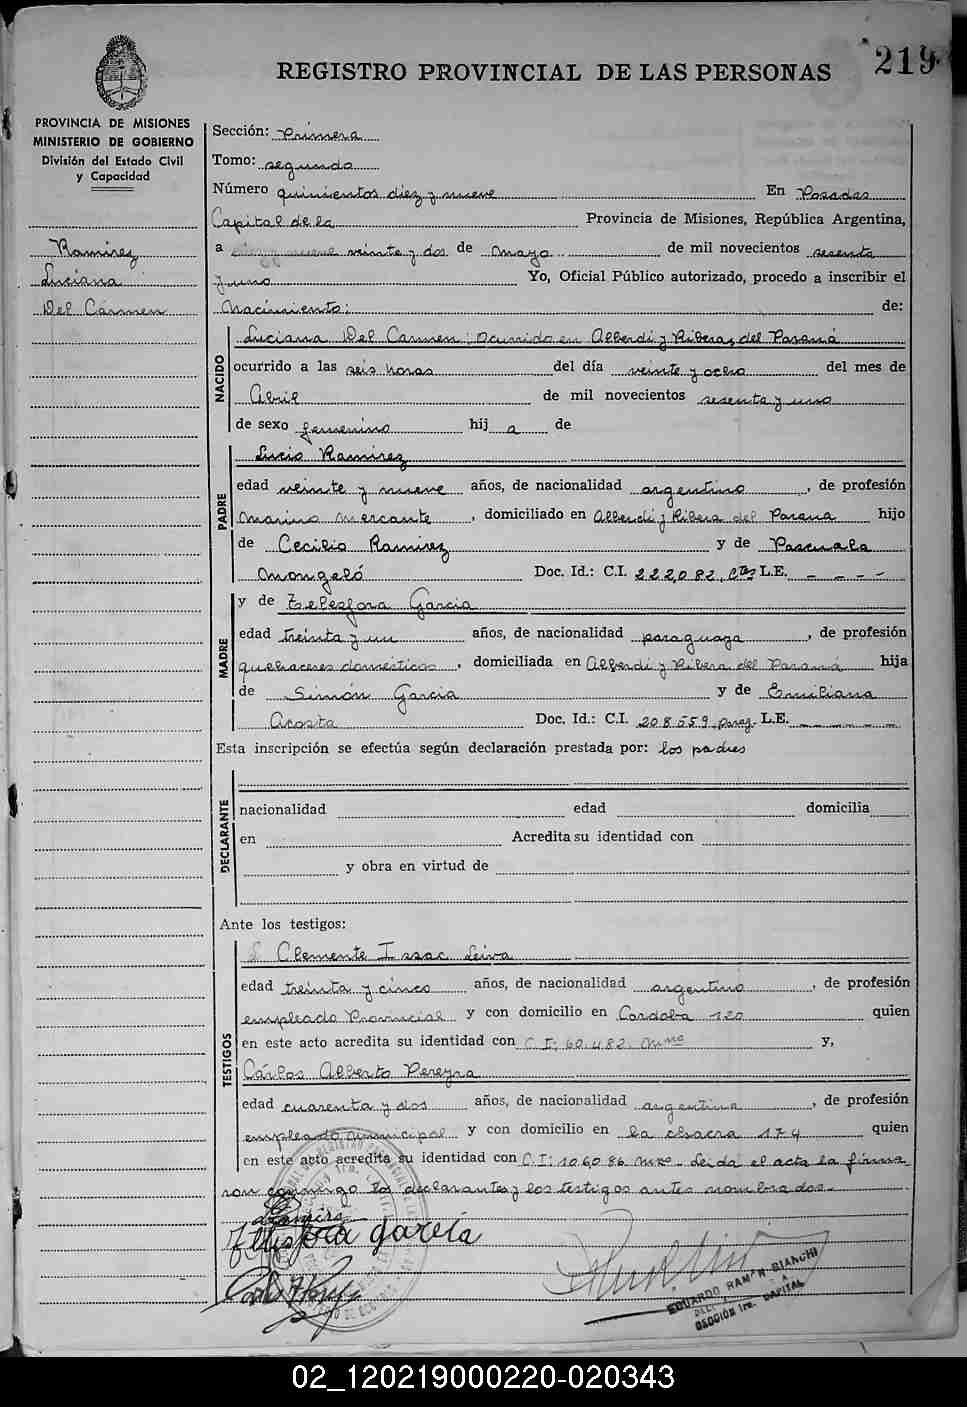 219
REGISTRO PROVINCIAL DE LAS PERSONAS
PROVINCIA DE MISIONES
MINISTERIO DE GOBIERNO
División del Estado Civil
y Capacidad
Ramirez
Luciana
Del Carmen
Sección: Primera
Tomo: segundo
Número quinientos diez y nueve En Posadas
Capital de la Provincia de Misiones, República Argentina,
a veinte y dos de mayo de mil novecientos sesenta
y uno Yo, Oficial Público autorizado, procedo a inscribir el
Nacimiento: de:
NACIDO
Luciana Del Carmen: ocurrido en Alberdi y Riberas del Paraná
ocurrido a las seis horas del día veinte y ocho del mes de
Abril de mil novecientos sesenta y uno
de sexo femenino hij a de
PADRE
Lucio Ramirez
edad veinte y nueve años, de nacionalidad argentino, de profesión
Marino mercante, domiciliado en Alberdi y Ribera del Parana hijo
de Cecilio Ramirez y de Pascuala
Mongeló Doc. Id.: C.I. 222082. Ctes L.E. - - - -
MADRE
y de Telesfora Garcia
edad treinta y un años, de nacionalidad paraguaya, de profesión
quehaceres domésticos, domiciliada en Alberdi y Ribera del Paraná hija
de Simón Garcia y de Emiliana
Acosta Doc. Id.: C.I. 208559 parag. L.E. - - - - -
Esta inscripción se efectúa según declaración prestada por: los padres
DECLARANTE
nacionalidad edad domicilia
en Acredita su identidad con
y obra en virtud de
Ante los testigos:
TESTIGOS
Clemente Issac Leiva
edad treinta y cinco años, de nacionalidad argentino, de profesión
empleado Provincial y con domicilio en Cordoba 120 quien
en este acto acredita su identidad con C.I: 60.482. Mnes y,
Cárlos Alberto Pereyra
edad cuarenta y dos años, de nacionalidad argentina, de profesión
empleado municipal y con domicilio en la chacra 174 quien
en este acto acredita su identidad con C.I: 106086 Mnes. Leida el acta la firma
ron conmigo los declarantes y los testigos antes nombrados.-
Ramirez
Telesfora garcía
EDUARDO RAMON BIANCHI
SECCIÓN 1ra. CAPITAL
02_120219000220-020343